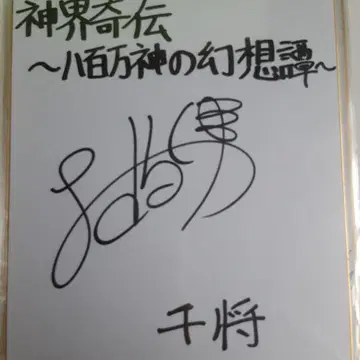 神界奇伝
～八百万神の幻想譚～
干将